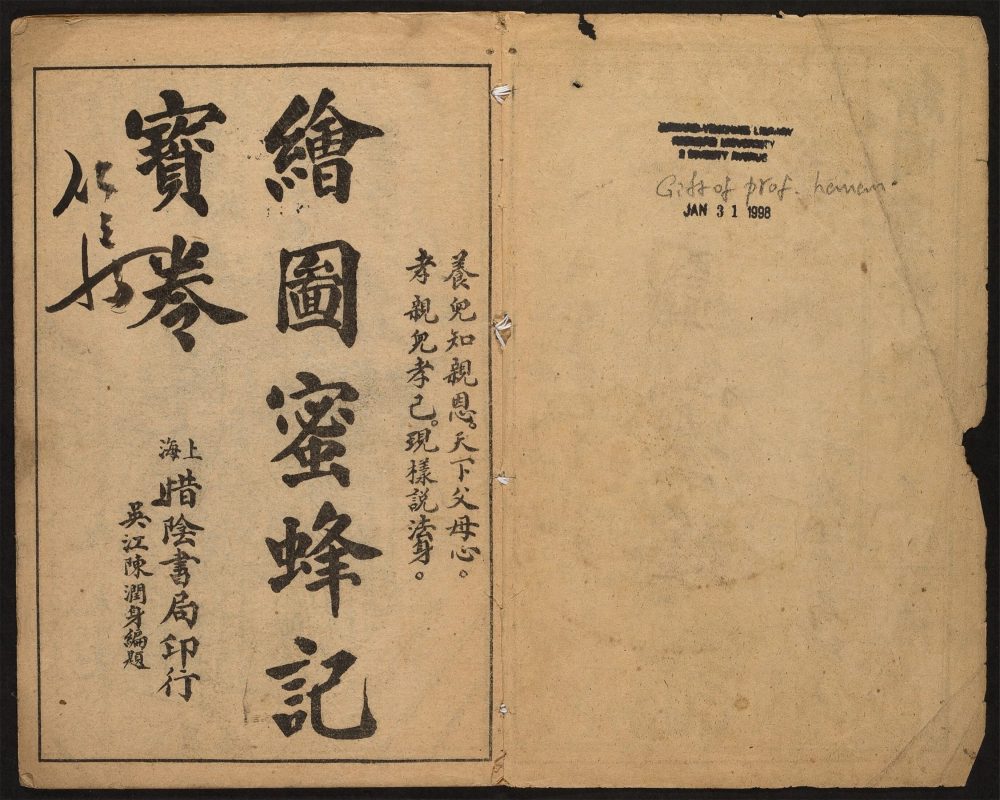 養兒知親恩。天下父母心。
孝親兒孝己。現樣説法身。
繪圖蜜蜂記
寶卷
上海惜陰書局印行
吳江陳潤身編題
HARVARD-YENCHING LIBRARY
HARVARD UNIVERSITY
2 DIVINITY AVENUE
Gift of prof. hanan
JAN 31 1998